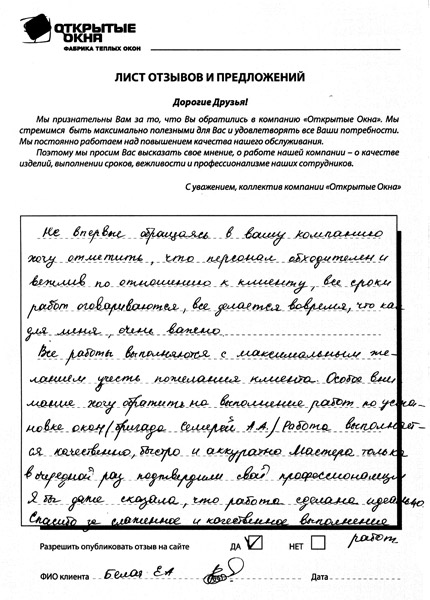 ОТКРЫТЫЕ
ОКНА
ФАБРИКА ТЕПЛЫХ ОКОН
ЛИСТ ОТЗЫВОВ И ПРЕДЛОЖЕНИЙ
Дорогие Друзья!
Мы признательны Вам за то, что Вы обратились в компанию «Открытые Окна». Мы
стремимся быть максимально полезными для Вас и удовлетворять все Ваши потребности.
Мы постоянно работаем над повышением качества нашего обслуживания.
Поэтому мы просим Вас высказать свое мнение, о работе нашей компании – о качестве
изделий, выполнении сроков, вежливости и профессионализме наших сотрудников.
С уважением, коллектив компании «Открытые Окна»
Не впервые обращаясь в вашу компанию
хочу отметить, что персонал обходителен и
вежлив по отношению к клиенту, все сроки
работ оговариваются, все делается вовремя, что как
для меня, очень важно
Все работы выполняются с максимальным же-
ланием учесть пожелания клиента. Особое вни
мание хочу обратить на выполнение работ по уста-
новке окон /бригада А.А./ Работа выполняет-
ся качественно, быстро и аккуратно Мастера только
в очередной раз подтвердили свой профессионализм
Я бы даже сказала, что работа сделана идеально.
Спасибо за слаженное и качественное выполнение
работ
Разрешить опубликовать отзыв на сайте ДА НЕТ
ФИО клиента Белая Е.А Дата